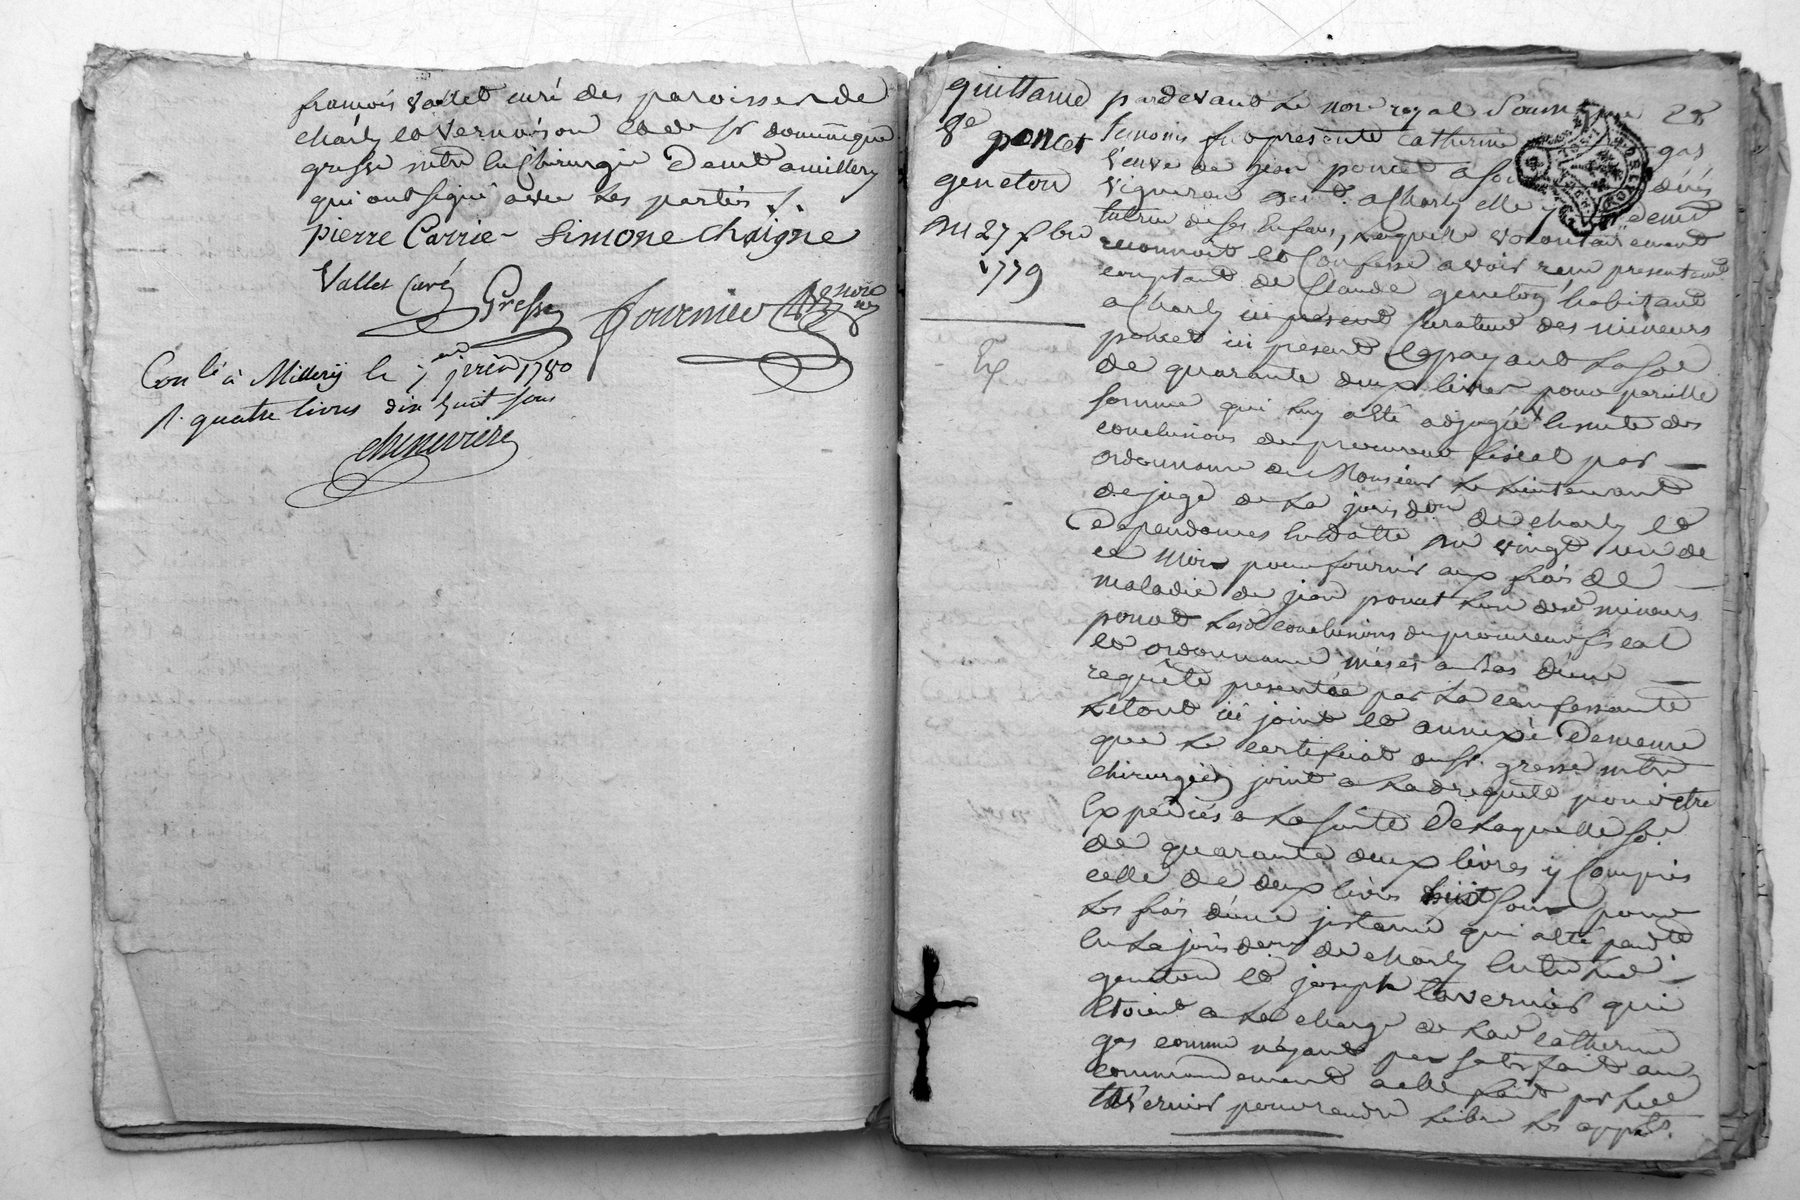 françois vallet curé des paroisses de
Charly et vernaison et de sr dominique
gresse mtre en Chirurgie demt a millery
qui ont signé avec les parties ./.
pierre Carrie simone chaigne
Vallet Curé Gresse fournier
Con lé à Millery le 1780
R. quatre livres dix huit sous
chenevière
quittance
poncet
geneton
Du 27 xbre
1779
pardevant Le nore royal soussigné
temoins fut presente Catherine gas
veuve de jean poncet
vigneron a Charly elle y demt
tutrice de ses Enfans, Laquelle volontairement
reconnoit et Confesse avoir reçu presentement
comptant de Claude geneton habitant
a Charly ici present Curateur des mineurs
poncet ici present et payant La soe
de quarante deux livres pour pareille
somme qui luy a été adjugée ensuite des
conclusions du procureur fiscal par
ordonnance de Monsieur Le Lieutenant
de juge de La jurisdon de charly et
Dependances En datte du vingt un de
ce mois pour fournir aux frais de
maladie de jean poncet L'un desd mineurs
poncet Lesd conclusions du procureur fiscal
et ordonnance mises au bas d'une
requête presentée par La confessante
Le tout ici joint et annexé Dememe
que Le certificat du sr. gresse mtre
chirurgien joint a Lad requete pour etre
Expediés a La suite De Laquelle soe
de quarante deux livres y Compris
celle de deux livres huit sous pour
Les frais d'une jnstance qui a été
En La jurisdon de Charly Entre Led
geneton et joseph tavernier qui
etoient a La charge de Lad catherine
gas comme n'ayant pas satisfait au
commandement a elle fait par Led
tavernier pour rendre Libre Les appts.